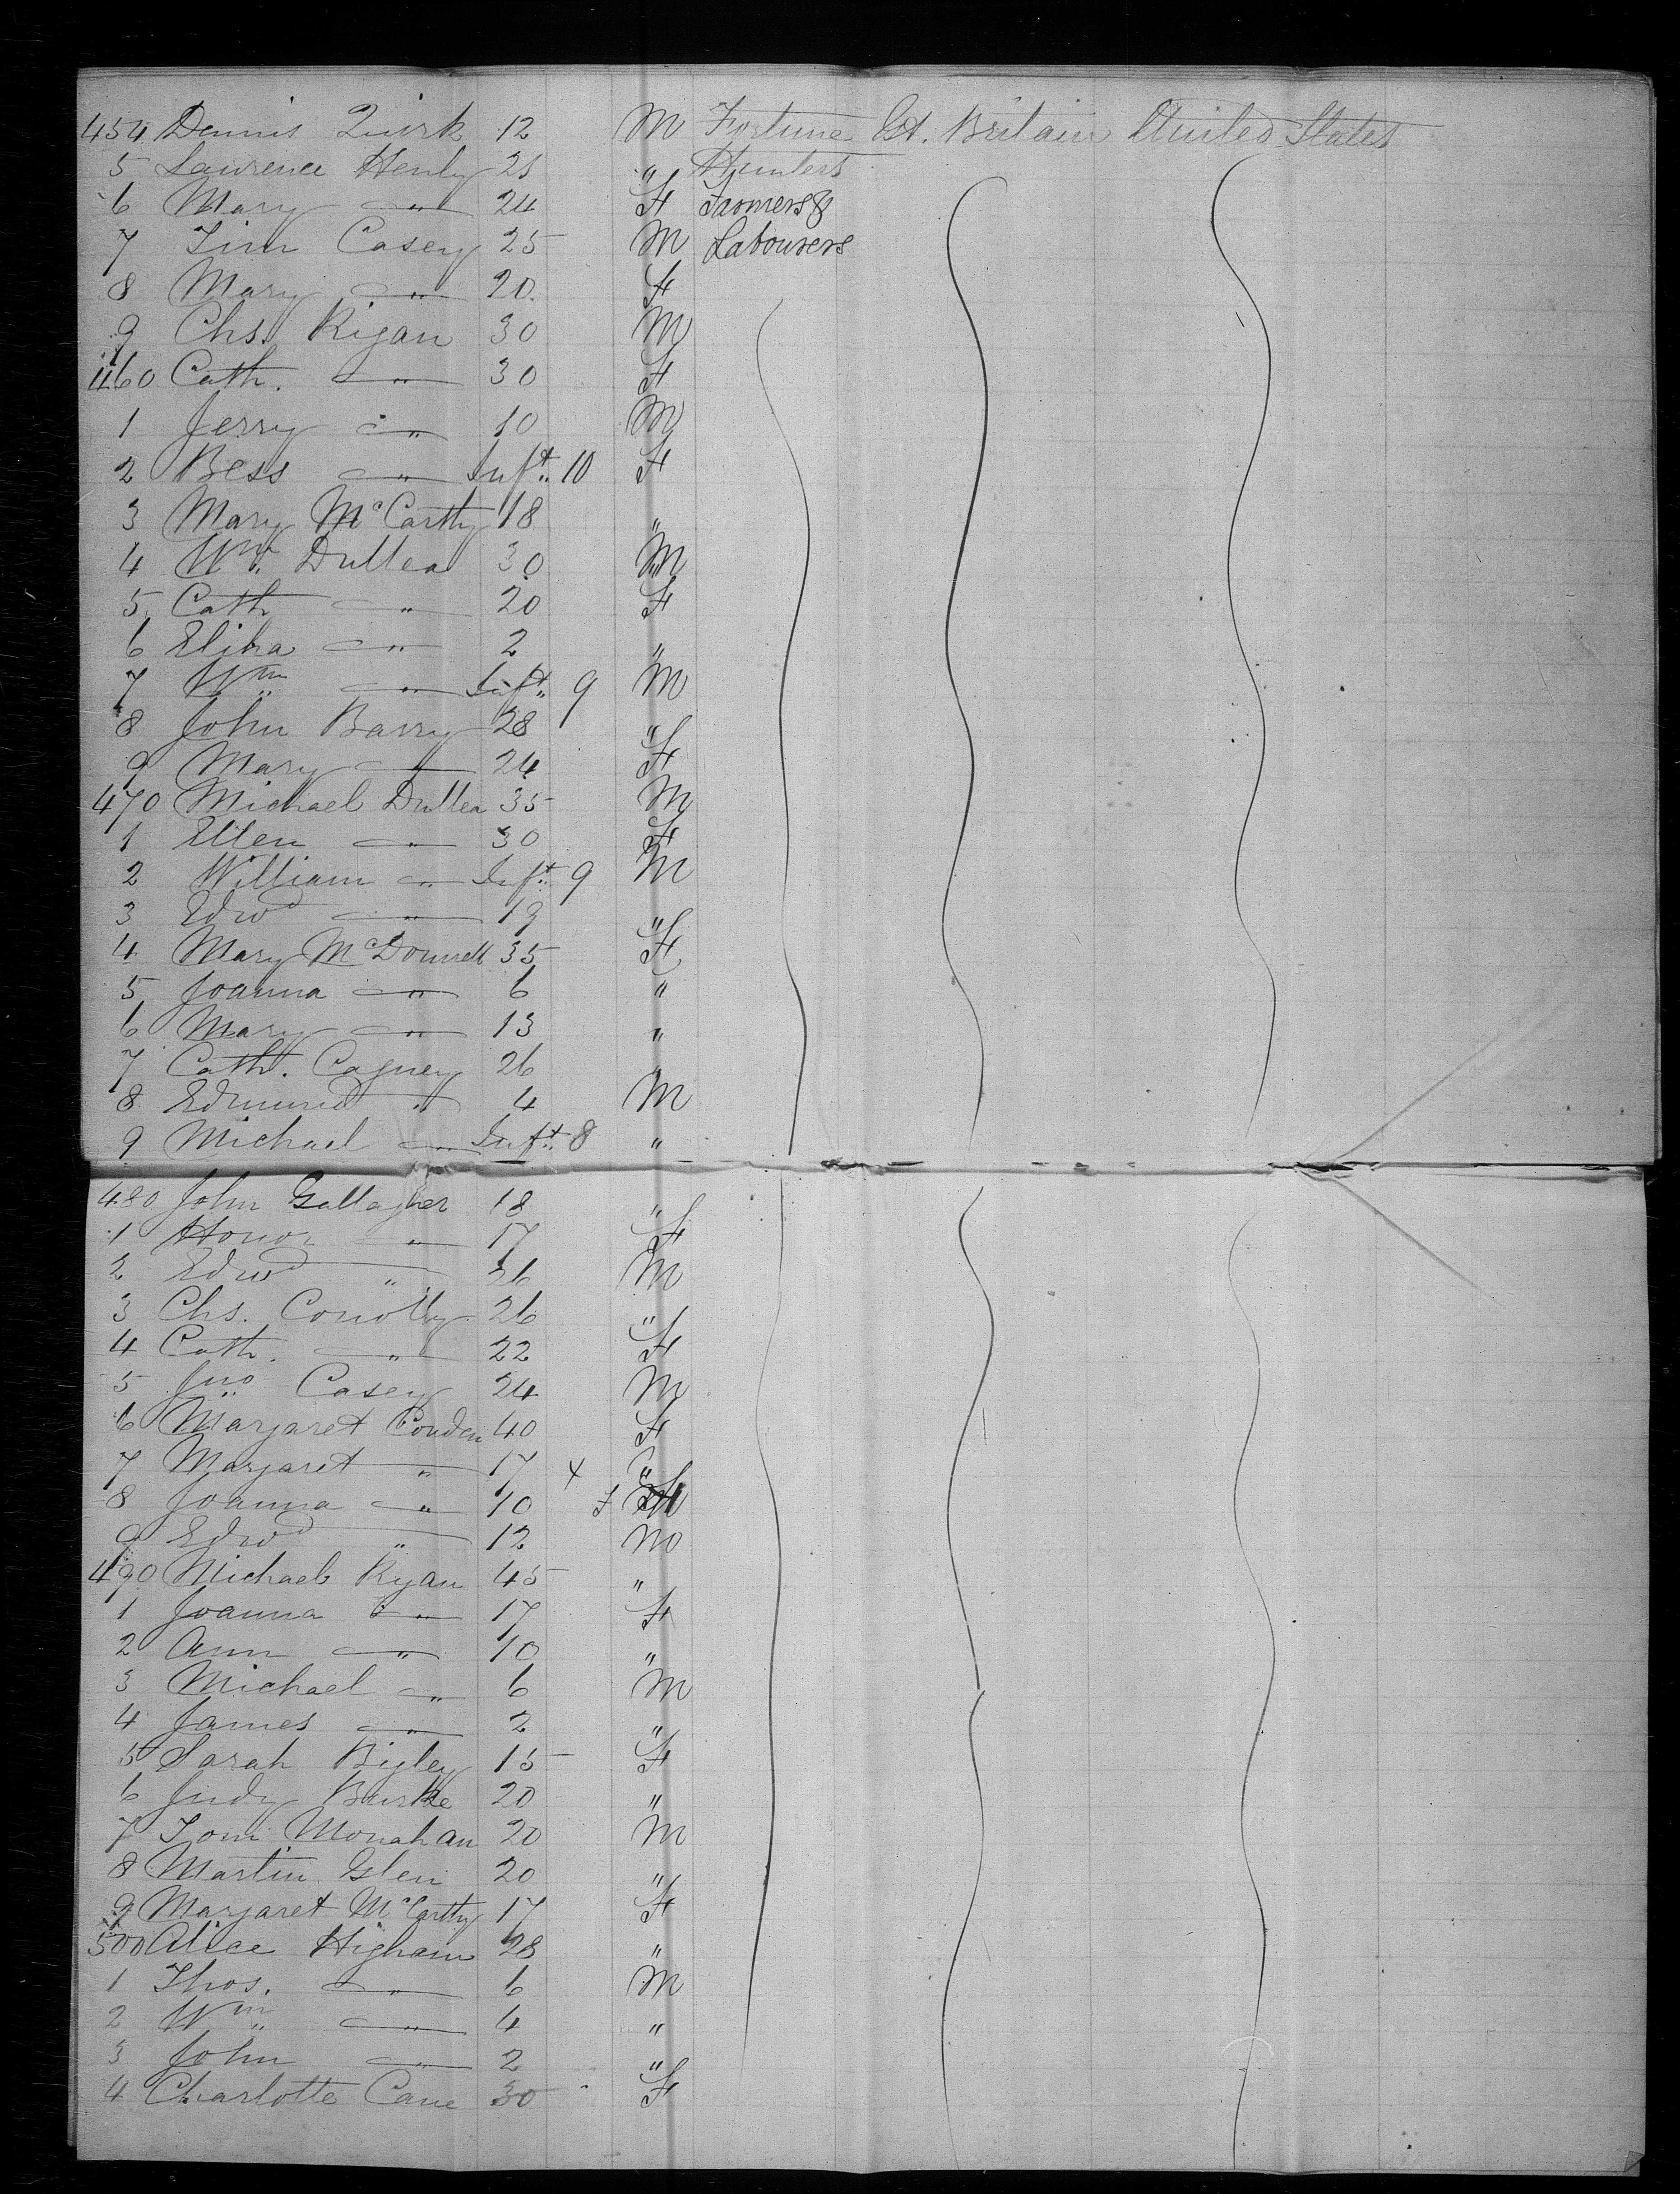 454 Dennis Quirk 12 M Fortune Gt. Britain United States
5 Lawrence Henly 21 " Hunters
6 Mary " 24 F Farmers &
7 Tim Casey 25 M Labourers
8 Mary " 20 F
9 Chs. Rigan 30 M
460 Cath. " 30 F
1 Jerry " 10 M
2 Bess " Inft. 10 F
3 Mary McCarthy 18 "
4 Wm. Dullea 30 M
5 Cath " 20 F
6 Eliha " 2 "
7 Wm " Inft. 9 M
8 John Barry 28 "
9 Mary " 24 F
470 Michael Dullea 35 M
1 Ellen " 30 F
2 William " Inft. 9 M
3 Edwd " 19 "
4 Mary McDonnell 35 F
5 Joanna " 6 "
6 Mary " 13 "
7 Cath. Cagney 26 "
8 Edmund " 4 M
9 Michael " Inft. 8 "
480 John Gallagher 18 "
1 Honor " 17 F
2 Edwd " 36 M
3 Chs. Conolly 26 "
4 Cath. " 22 F
5 Jno Casey 24 M
6 Margaret Conden 40 F
7 Margaret " 17 "
8 Joanna " 10 F
9 Edwd " 12 M
490 Michael Ryan 45 "
1 Joanna " 17 F
2 Ann " 10 "
3 Michael " 6 M
4 James " 2 "
5 Sarah Bigley 15 F
6 Judy Burke 20 "
7 Tom Monahan 20 M
8 Martin Glen 20 "
9 Margaret McCarthy 17 F
500 Alice Higham 28 "
1 Thos. " 6 M
2 Wm " 4 "
3 John " 2 "
4 Charlotte Cane 30 F